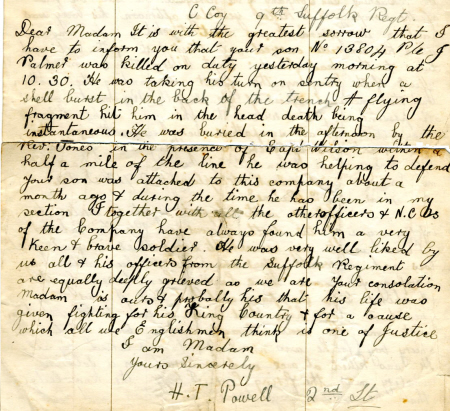 C Coy 9th Suffolk Regt
Dear Madam It is with the greatest sorrow that I
have to inform you that your son No 13804 Pte J
Palmer was killed on duty yesterday morning at
10.30. He was taking his turn on sentry when a
shell burst in the back of the trench A flying
fragment hit him in the head death being
instantaneous. He was buried in the afternoon by the
Rev. Jones in the presence of Capt Wilson within a
half a mile of the line he was helping to defend
Your son was attached to this company about a
month ago & during the time he has been in my
section I together with all the other officers & N.C.Os
of the Company have always found him a very
keen & brave soldier. He was very well liked by
us all & his officers from the Suffolk Regiment
are equally deeply grieved as we are Your consolation
Madam is ours & probally his that his life was
given fighting for his King Country & for a cause
which all we Englishmen think is one of Justice
I am Madam
Yours Sincerely
H. T. Powell 2nd Lt